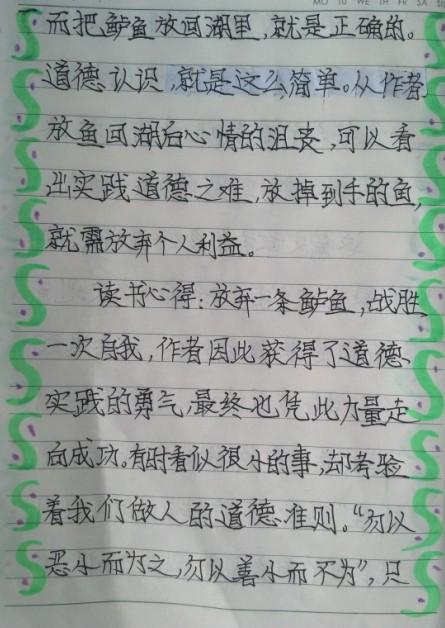 而把鲈鱼放回湖里,就是正确的。
道德认识,就是这么简单。从作者
放鱼回湖后心情的沮丧,可以看
出实践道德之难,放掉到手的鱼,
就需放弃个人利益。
读书心得:放弃一条鲈鱼,战胜
一次自我,作者因此获得了道德
实践的勇气,最终也凭此力量走
向成功。有时看似很小的事,却考验
着我们做人的道德准则。“勿以
恶小而为之,勿以善小而不为”,只